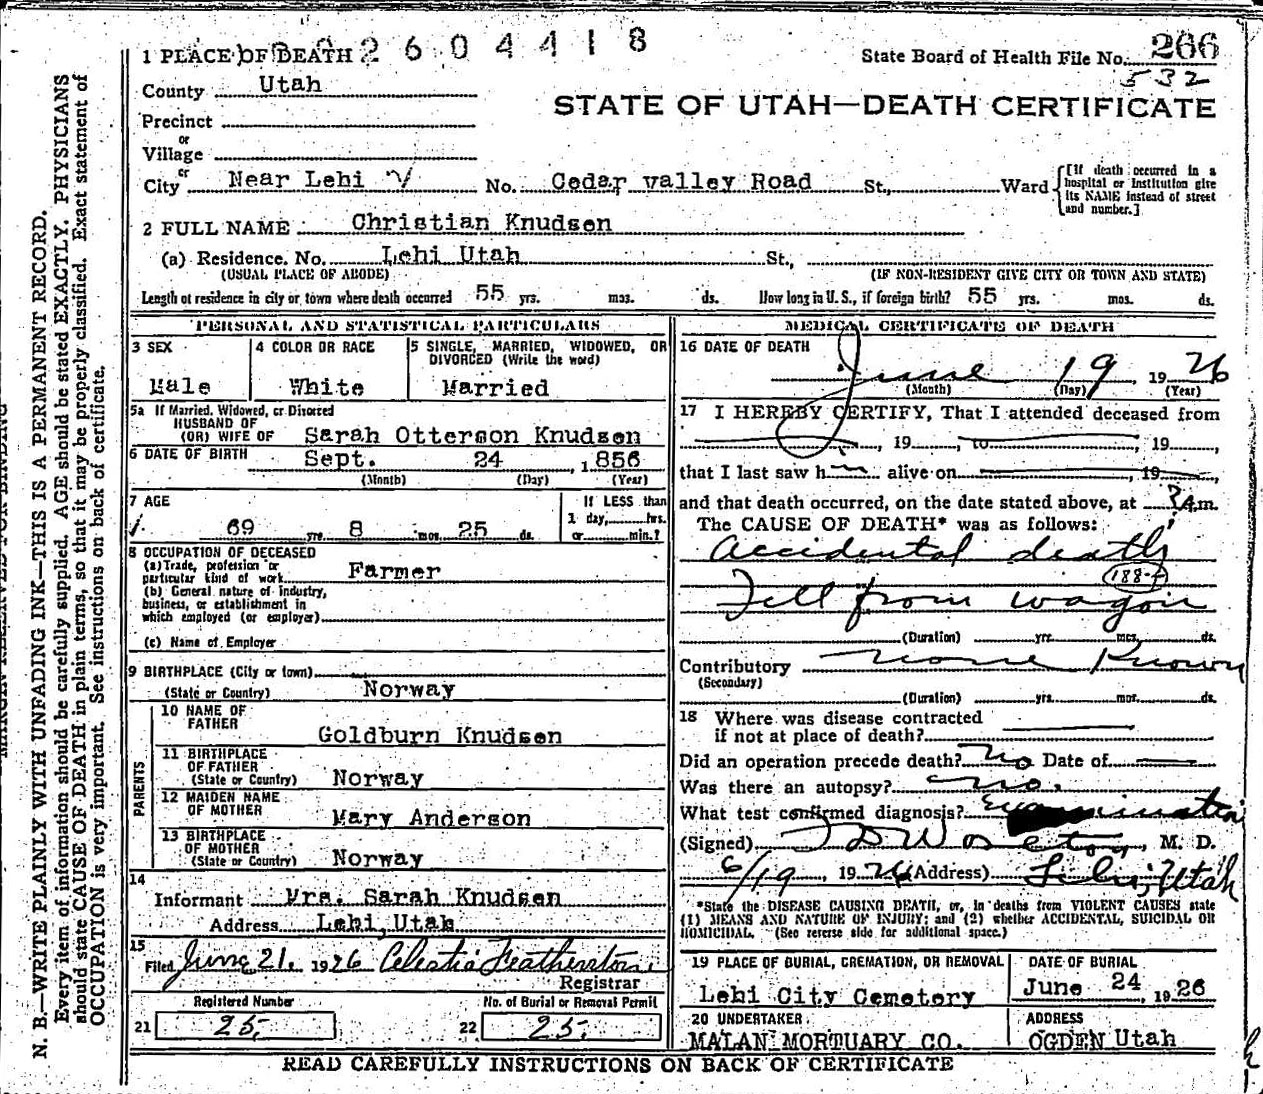 1 PLACE OF DEATH 2 6 0 4 4 1 8
State Board of Health File No. 266
532
County Utah
STATE OF UTAH—DEATH CERTIFICATE
Precinct
or
Village
or
City Near Lehi No. Cedar valley Road St., Ward
[If death occurred in a hospital or institution give its NAME instead of street and number.]
2 FULL NAME Christian Knudsen
(a) Residence. No. Lehi Utah St.,
(USUAL PLACE OF ABODE) (IF NON-RESIDENT GIVE CITY OR TOWN AND STATE)
Length of residence in city or town where death occurred 55 yrs. mos. ds. How long in U. S., if foreign birth? 55 yrs. mos. ds.
PERSONAL AND STATISTICAL PARTICULARS
3 SEX
Male
4 COLOR OR RACE
White
5 SINGLE, MARRIED, WIDOWED, OR
DIVORCED (Write the word)
Married
5a If Married, Widowed, or Divorced
HUSBAND OF
(OR) WIFE OF Sarah Otterson Knudsen
6 DATE OF BIRTH Sept. 24, 1856
(Month) (Day) (Year)
7 AGE
69 yrs. 8 mos. 25 ds.
If LESS than
1 day, hrs.
or min.?
8 OCCUPATION OF DECEASED
(a) Trade, profession or
particular kind of work Farmer
(b) General nature of industry,
business, or establishment in
which employed (or employer)
(c) Name of Employer
9 BIRTHPLACE (City or town)
(State or Country) Norway
PARENTS
10 NAME OF
FATHER Goldburn Knudsen
11 BIRTHPLACE
OF FATHER
(State or Country) Norway
12 MAIDEN NAME
OF MOTHER Mary Anderson
13 BIRTHPLACE
OF MOTHER
(State or Country) Norway
14
Informant Mrs. Sarah Knudsen
Address Lehi, Utah
15
Filed June 21, 1926 Celestia Featherstone
Registrar
Registered Number
21 25
No. of Burial or Removal Permit
22 25
MEDICAL CERTIFICATE OF DEATH
16 DATE OF DEATH
June 19, 1926
(Month) (Day) (Year)
17 I HEREBY CERTIFY, That I attended deceased from
, 19 , to , 19 ,
that I last saw him alive on , 19 ,
and that death occurred, on the date stated above, at ? A.m.
The CAUSE OF DEATH* was as follows:
Accidental death
188-f
Fell from wagon
(Duration) yrs. mos. ds.
Contributory None Known
(Secondary)
(Duration) yrs. mos. ds.
18 Where was disease contracted
if not at place of death?
Did an operation precede death? No Date of
Was there an autopsy? no.
What test confirmed diagnosis? Examination
(Signed) , M. D.
6/19, 1926 (Address) Lehi, Utah
*State the DISEASE CAUSING DEATH, or, in deaths from VIOLENT CAUSES state
(1) MEANS AND NATURE OF INJURY; and (2) whether ACCIDENTAL, SUICIDAL OR
HOMICIDAL. (See reverse side for additional space.)
19 PLACE OF BURIAL, CREMATION, OR REMOVAL
Lehi City Cemetery
DATE OF BURIAL
June 24, 1926
20 UNDERTAKER
MALAN MORTUARY CO.
ADDRESS
OGDEN Utah
READ CAREFULLY INSTRUCTIONS ON BACK OF CERTIFICATE
N. B.—WRITE PLAINLY WITH UNFADING INK—THIS IS A PERMANENT RECORD.
Every item of information should be carefully supplied. AGE should be stated EXACTLY. PHYSICIANS
should state CAUSE OF DEATH in plain terms, so that it may be properly classified. Exact statement of
OCCUPATION is very important. See instructions on back of certificate.